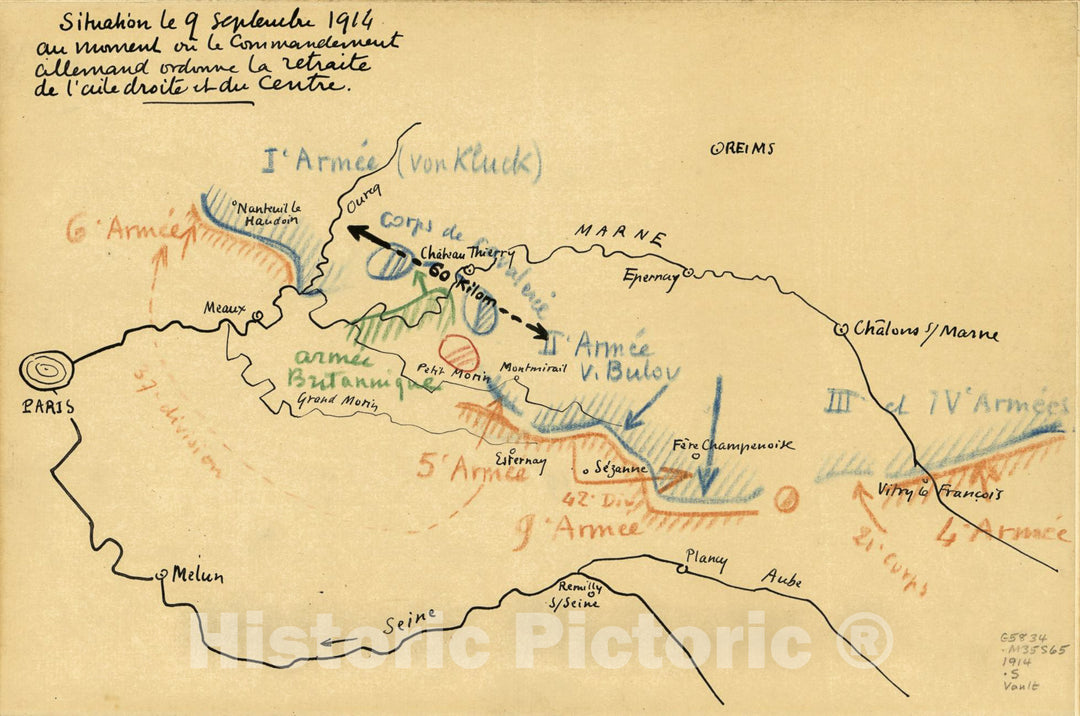 Situation le 9 Septembre 1914
au moment où le Commandement
allemand ordonne la retraite
de l'aile droite et du Centre.
REIMS
Iᵉ Armée (von Kluck)
Ourcq
Nanteuil le
Haudoin
6ᵉ Armée
Corps de Cavalerie
MARNE
Château Thierry
60 Kilom
Epernay
Meaux
Châlons s/Marne
IIᵉ Armée
v. Bulov
armée
Britannique
Petit Morin
Montmirail
PARIS
Grand Morin
III et IVᵉ Armées
37ᵉ division
Fère Champenoise
Esternay
Sézanne
5ᵉ Armée
Vitry le François
42ᵉ Div
9ᵉ Armée
4ᵉ Armée
21ᵉ Corps
Plancy
Aube
Melun
Romilly
s/Seine
Seine
Historic Pictoric ®
G5834
.M35S65
1914
.S
Vault